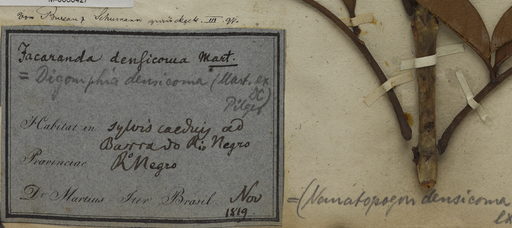 Von Bureau & Schumann zurückgek. III 97.
Jacaranda densicoma Mart.
= Digomphia densicoma (Mart. ex
DC)
Pilger
Habitat in sylvis caeduis ad
Barra do Rio Negro
Provinciae Ro Negro
Dr Martius Iter Brasil. Nov
1819.
= (Nematopogon densicoma
ex